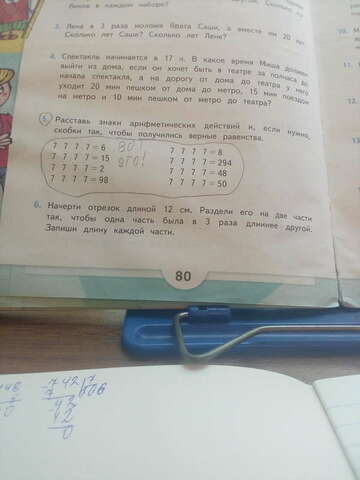 бехов в каждом наборе?
3. Лена в 3 раза моложе брата Саши, а вместе им 20 лет.
Сколько лет Саше? Сколько лет Лене?
4. Спектакль начинается в 17 ч. В какое время Миша должен
выйти из дома, если он хочет быть в театре за полчаса до
начала спектакля, а на дорогу от дома до театра у него
уходит 20 мин пешком от дома до метро, 15 мин поездом
на метро и 10 мин пешком от метро до театра?
5. Расставь знаки арифметических действий и, если нужно,
скобки так, чтобы получились верные равенства.
7 7 7 7 = 6
7 7 7 7 = 15
7 7 7 7 = 2
7 7 7 7 = 98
7 7 7 7 = 8
7 7 7 7 = 294
7 7 7 7 = 48
7 7 7 7 = 50
6. Начерти отрезок длиной 12 см. Раздели его на две части
так, чтобы одна часть была в 3 раза длиннее другой.
Запиши длину каждой части.
80
742 7
7 106
42
42
0
10.
11.
12.
13.